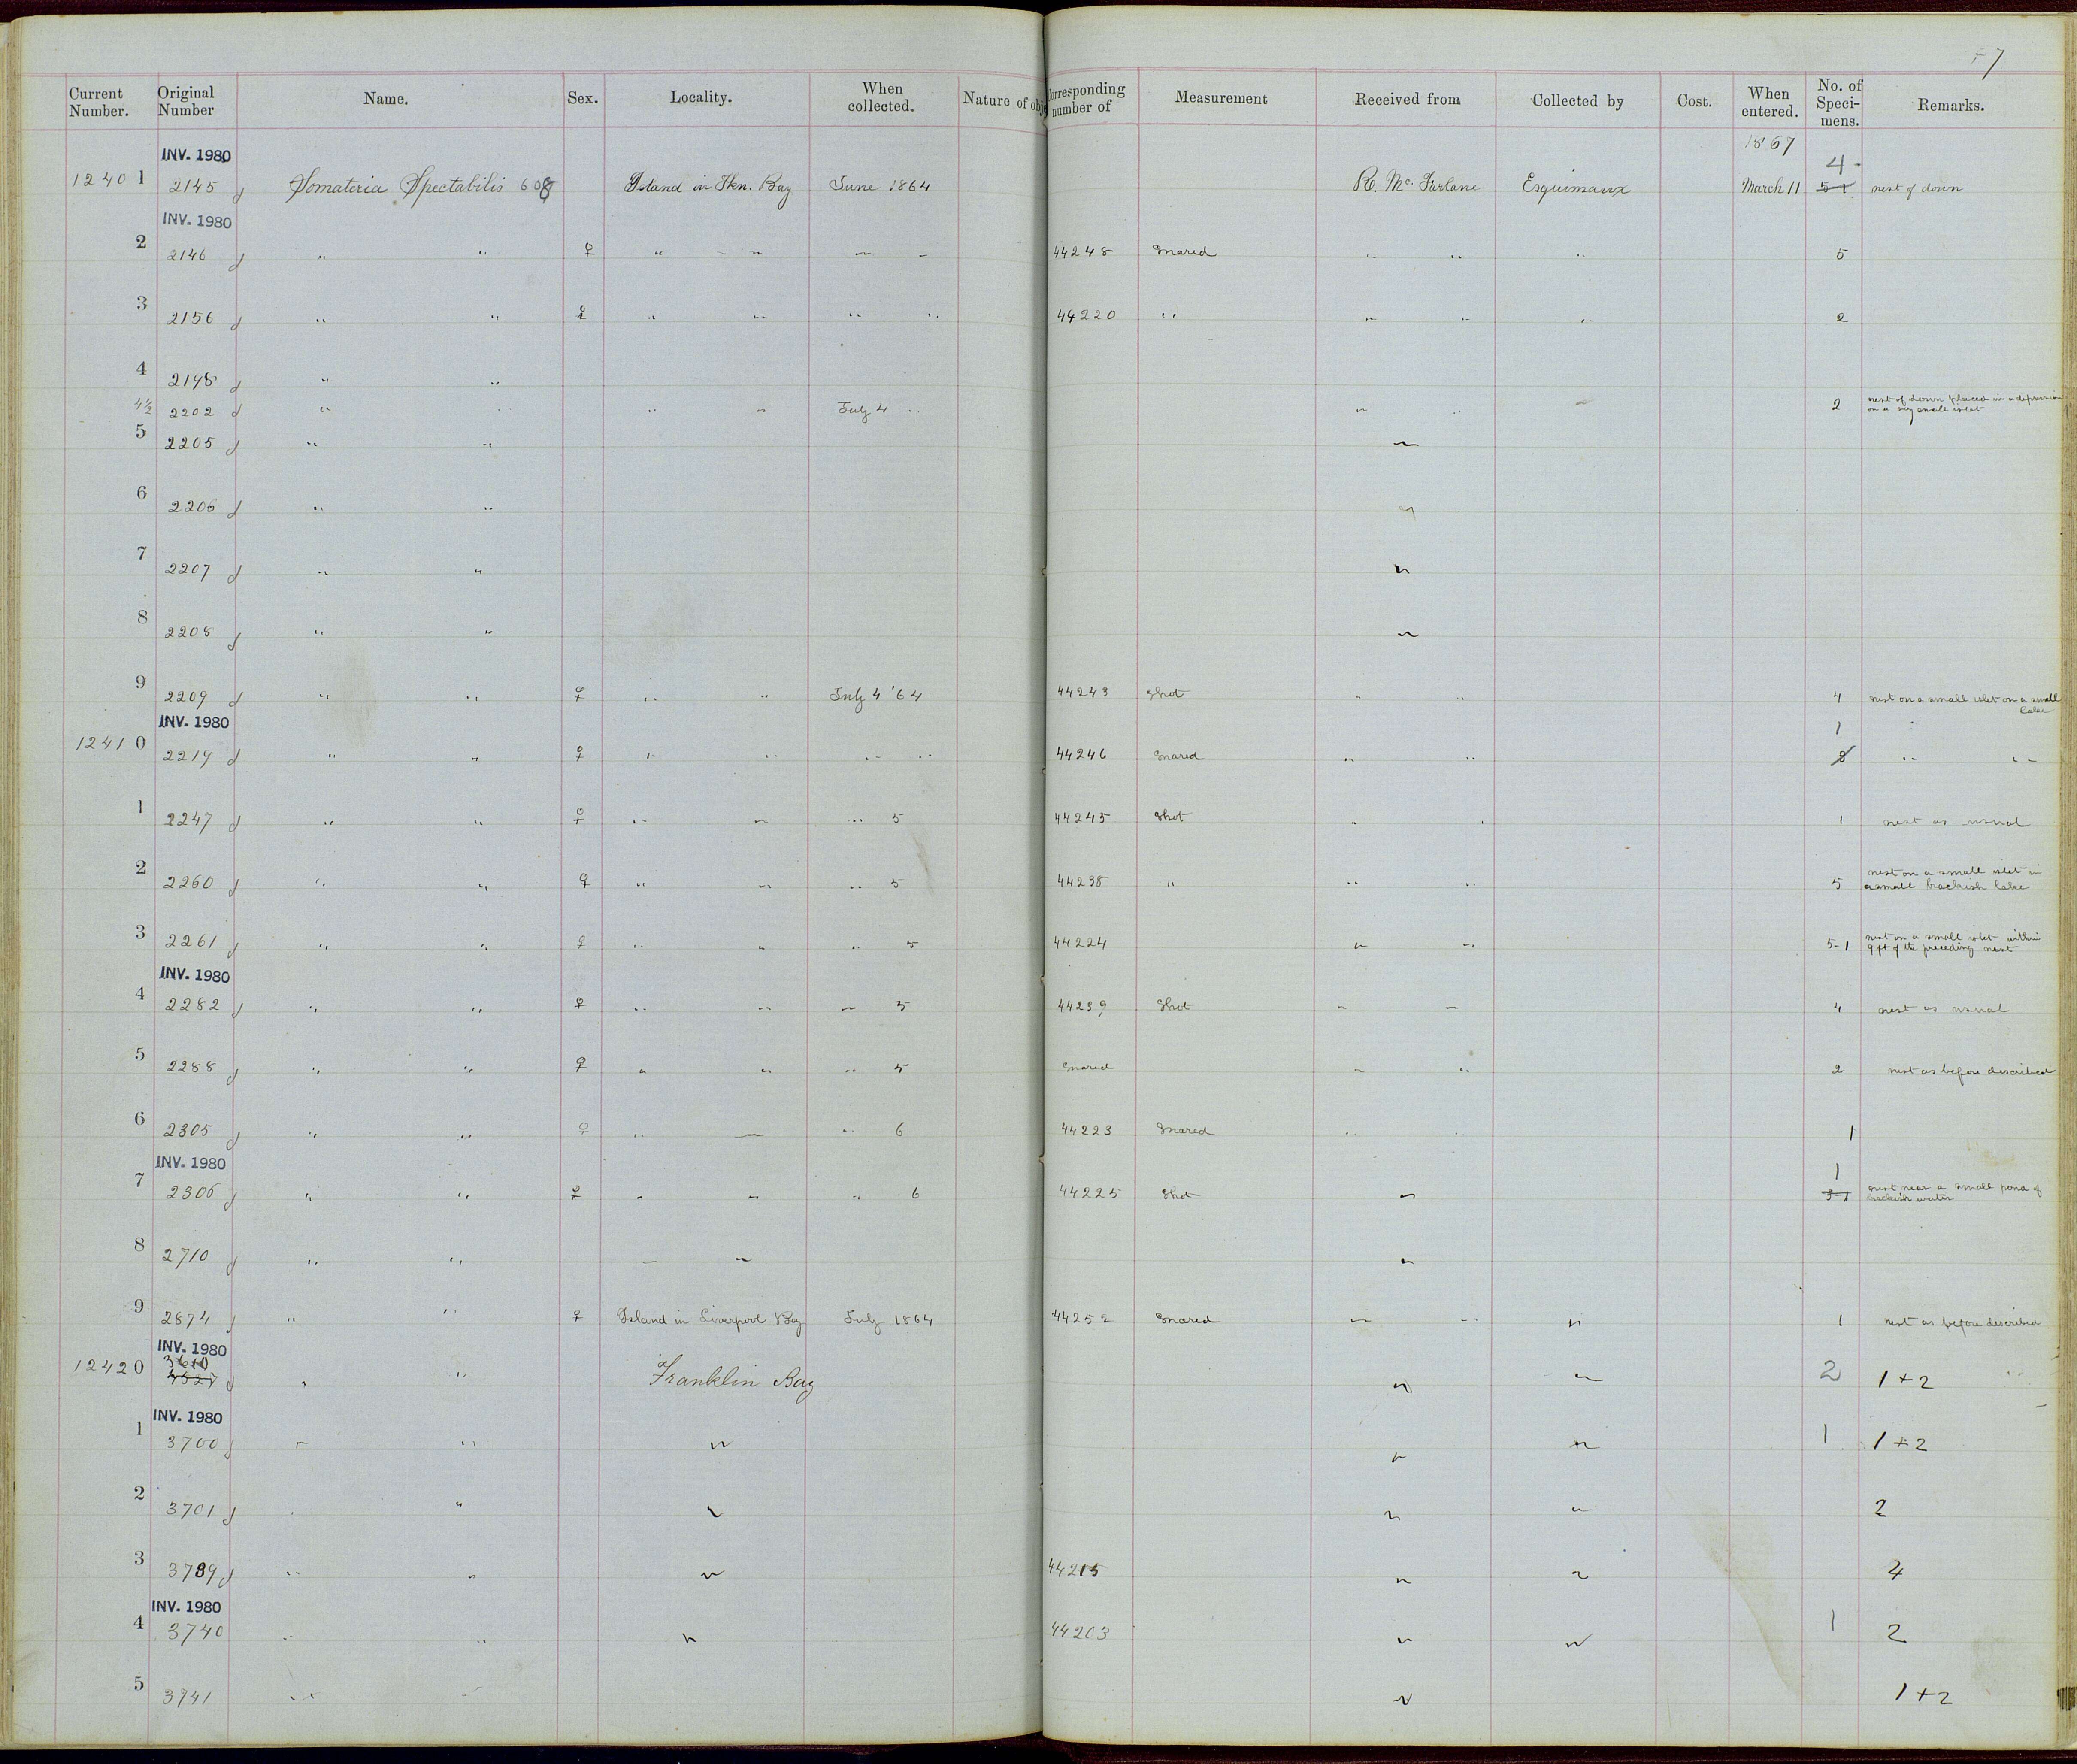 57
Current Number. Original Number Name. Sex. Locality. When collected. Nature of obje Corresponding number of Measurement Received from Collected by Cost. When entered. No. of Speci-mens. Remarks.
1867
INV. 1980 4
12401 2145 Somateria Spectabilis 608 Island in Fkn. Bay June 1864 R. Mc. Farlane Esquimaux March 11 5-1 nest of down
INV. 1980
2 2146 " " ♀ " " " " " 44248 Snared " " " 5
3 2156 " " ♀ " " " " 44220 " " " " 2
4 2198 " "
4½ 2202 " " " " July 4 " " " " 2 nest of down placed in a depression
on a very small islet
5 2205 " " "
6 2206 " " "
7 2207 " " "
8 2208 " " "
9 2209 " " ♀ " " July 4 '64 44243 Shot " " 4 nest on a small islet on a small
lake
INV. 1980 1
12410 2219 " " ♀ " " " " 44246 Snared " " 8 " "
1 2247 " " ♀ " " " 5 44245 Shot " " 1 nest as usual
2 2260 " " ♀ " " " 5 44238 " " " 5 nest on a small islet in
a small brackish lake
3 2261 " " ♀ " " " 5 44224 " " 5-1 nest on a small islet within
9 ft of the preceding nest
INV. 1980
4 2282 " " ♀ " " " 5 44239 Shot " " 4 nest as usual
5 2288 " " ♀ " " " 5 Snared " " 2 nest as before described
6 2305 " " ♀ " " " 6 44223 Snared " " 1
INV. 1980 1
7 2306 " " ♀ " " " 6 44225 Shot " 3-1 nest near a small pond of
brackish water
8 2710 " " " " "
9 2874 " " ♀ Island in Liverpool Bay July 1864 44252 Snared " " " 1 nest as before described
INV. 1980
12420 " " Franklin Bay " " 2 1+2
INV. 1980
1 3700 " " " " " 1 1+2
2 3701 " " " " " 2
3 3739 " " " 44215 " " 4
INV. 1980
4 3740 " " " 44203 " " 1 2
5 3741 " " " 1+2